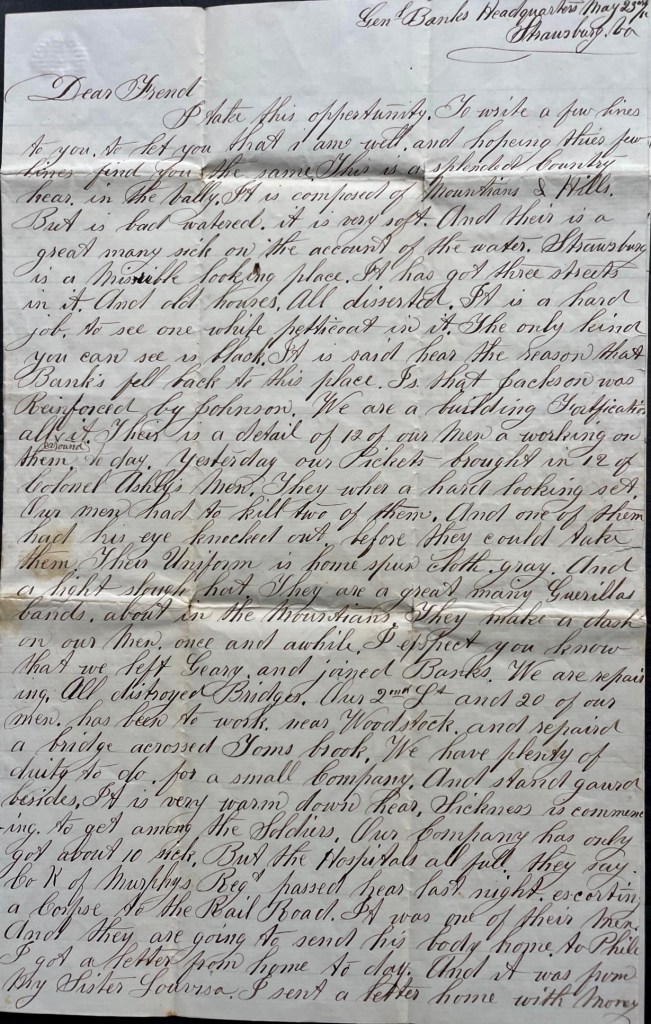 Genl Banks Headquarters May 23rd/62
Strausburg. Va
Dear Frend
I take this opportunity. To write a few lines
to you. to let you that i am well. and hopeing thies few
lines find you the same. This is a splendid Country
hear. in the vally. It is composed of Mountians & Hills.
But is bad watered. it is very soft. And their is a
great many sick on the account of the water. Strausburg
is a Misrible looking place. It has got three streets
in it. And old houses. All disserted. It is a hard
job. to see one white petticoat in it. The only kind
you can see is black. It is said hear the reason that
Bank's fell back to this place. Is that Jackson was
Reinforced by Johnson. We are a building Fortification
all around it. Their is a detail of 12 of our Men a working on
them. to day. Yesterday our Pickets brought in 12 of
Colonel Ashby's Men. They wher a hard looking set.
Our men had to kill two of them. And one of them
had his eye knocked out. before they could take
them. Their Uniform is home spun cloth. gray. And
a light slouch hat. They are a great many Guerillas
bands. about in the Mountians. They make a dash
on our Men. once and awhile. I expect you know
that we left Geary. and joined Banks. We are repair
ing. All distroyed Bridges. Our 2nd Lt and 20 of our
men. has been to work. near Woodstock. and repaird
a bridge acrossed Toms brook. We have plenty of
duity to do. for a small Company. And stand gaurd
besides. It is very warm down hear. Sickness is commenc
-ing. to get among the Soldiers. Our Company has only
got about 10 sick. But the Hospitals all full. they say.
Co K of Murphys Regt passed hear last night. escorting
a Corpse to the Rail Road. It was one of their Men.
And they are going to send his body home. to Phila
I got a letter from home to day. And it was from
My Sister Louvisa. I sent a letter home with Money